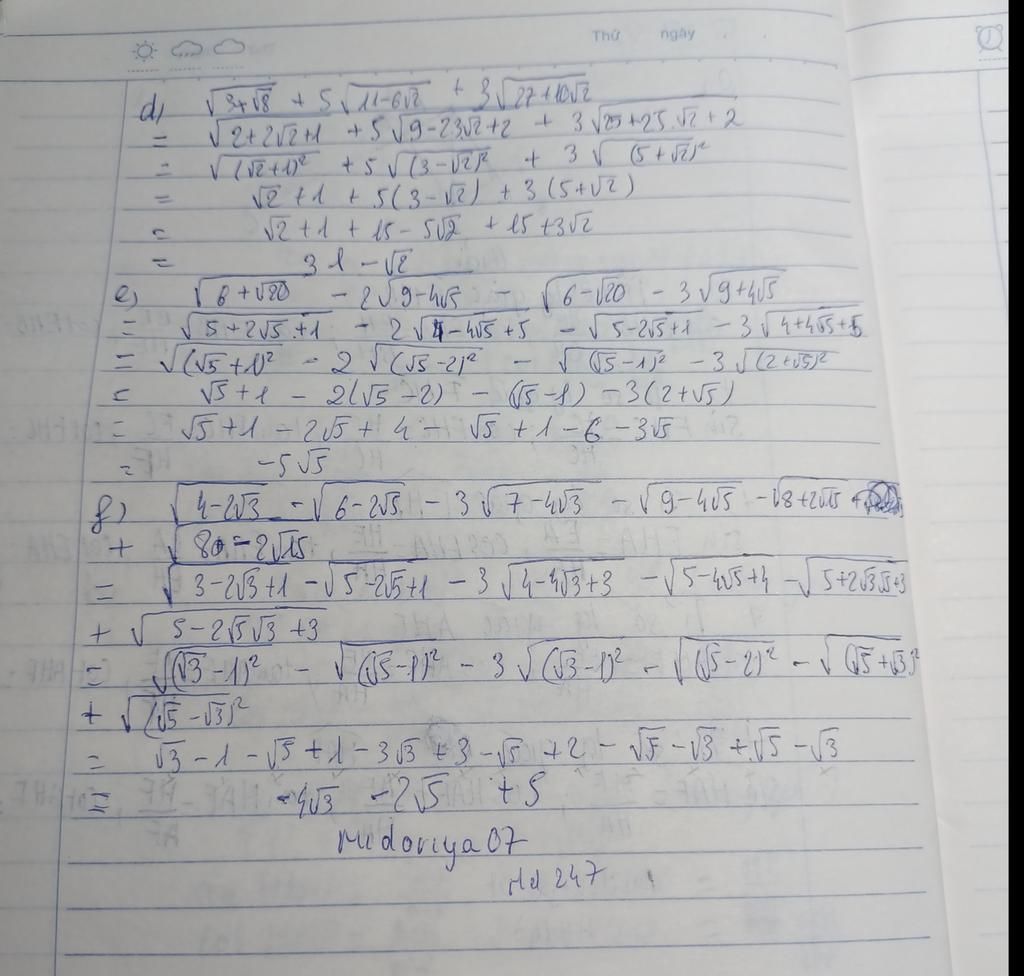 Thứ ngày
d) √(3+√8) + 5√(11-6√2) + 3√(27+10√2)
= √(2+2√2+1) + 5√(9-23√2+2) + 3√(25+25.√2+2)
= √((√2+1)²) + 5√((3-√2)²) + 3√((5+√2)²)
= √2+1 + 5(3-√2) + 3(5+√2)
= √2+1 + 15-5√2 + 15+3√2
= 31-√2
e) √(6+√20) - 2√(9-4√5) - √(6-√20) - 3√(9+4√5)
= √(5+2√5+1) - 2√(4-4√5+5) - √(5-2√5+1) - 3√(4+4√5+5)
= √((√5+1)²) - 2√((√5-2)²) - √((√5-1)²) - 3√((2+√5)²)
= √5+1 - 2(√5-2) - (√5-1) - 3(2+√5)
= √5+1-2√5+4-√5+1-6-3√5
= -5√5
f) √(4-2√3) - √(6-2√5) - 3√(7-4√3) - √(9-4√5) - √(8+2√15)
+ √(8-2√15)
= √(3-2√3+1) - √(5-2√5+1) - 3√(4-4√3+3) - √(5-4√5+4) - √(5+2√3√5+3)
+ √(5-2√5√3+3)
= √((√3-1)²) - √((√5-1)²) - 3√((√3-1)²) - √((√5-2)²) - √((√5+√3)²)
+ √((√5-√3)²)
= √3-1-√5+1-3√3+3-√5+2-√5-√3+√5-√3
= -4√3 -2√5 +5
Midoriya07
Hd 247